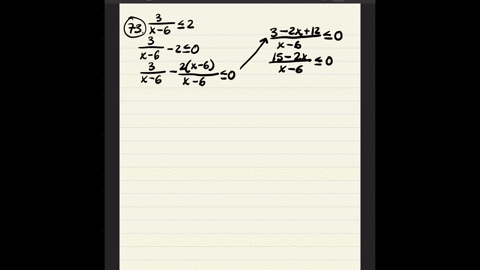 73. 3/(x-6) ≤ 2
3/(x-6) - 2 ≤ 0
3/(x-6) - 2(x-6)/(x-6) ≤ 0
(3-2x+12)/(x-6) ≤ 0
(15-2x)/(x-6) ≤ 0